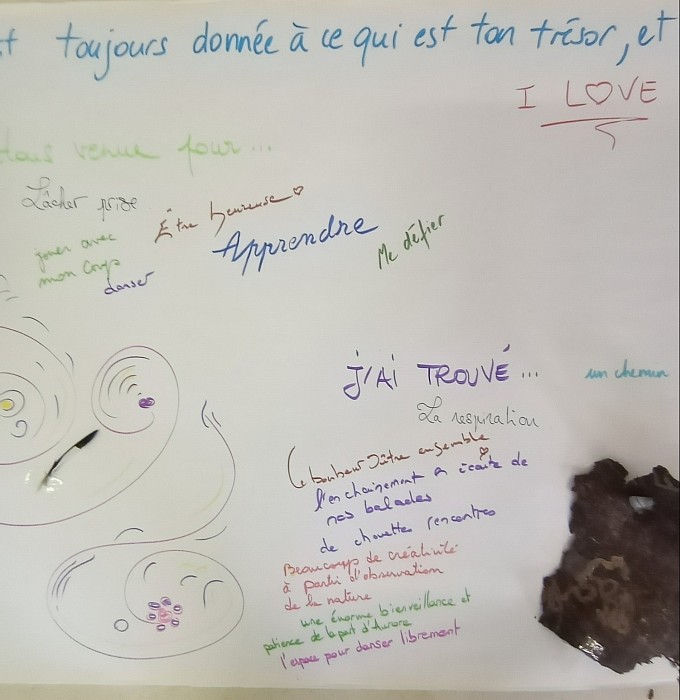 t toujours donnée à ce qui est ton trésor, et
I LOVE
venue pour...
Lâcher prise
Être heureuse
jouer avec
mon corps
danser
Apprendre
Me défier
J'AI TROUVÉ...
un chemin
La respiration
Le bonheur d'être ensemble
l'enchainement à écoute de
nos balades
de chouette rencontres
Beaucoup de créativité
à partir d'observation
de la nature
une énorme bienveillance et
patience de la part d'Aurore
l'espace pour danser librement